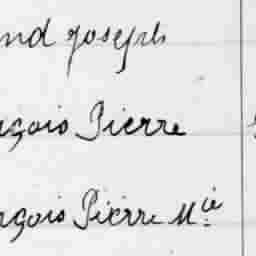 nd joseph
nçois Pierre
nçois Pierre Mie